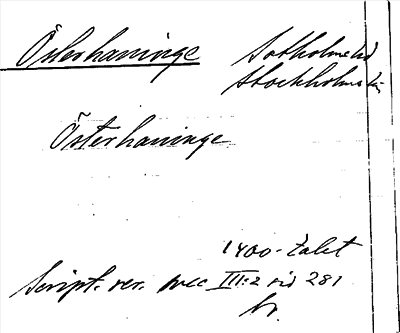 Österhaninge Sotholms hd
Stockholms län
Österhaninge
1400-talet
Script. rer. svec III:2 sid 281